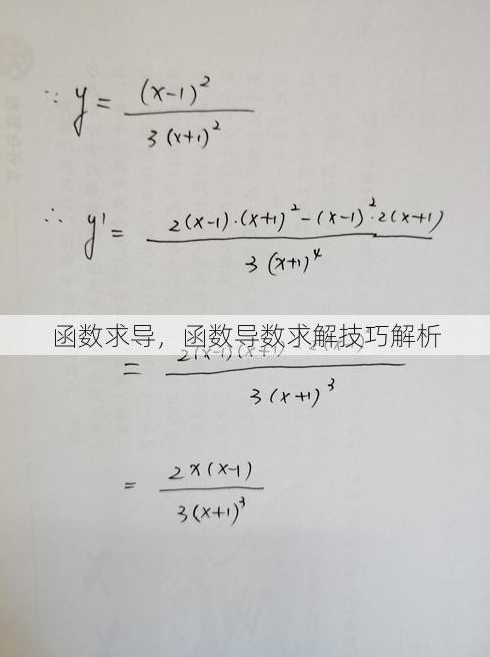 ∵ y = (x-1)² / 3(x+1)²
∴ y' = 2(x-1)·(x+1)² - (x-1)²·2(x+1) / 3(x+1)⁴
函数求导，函数导数求解技巧解析
= 2(x-1)(x+1) / 3(x+1)³
= 2x(x-1) / 3(x+1)³